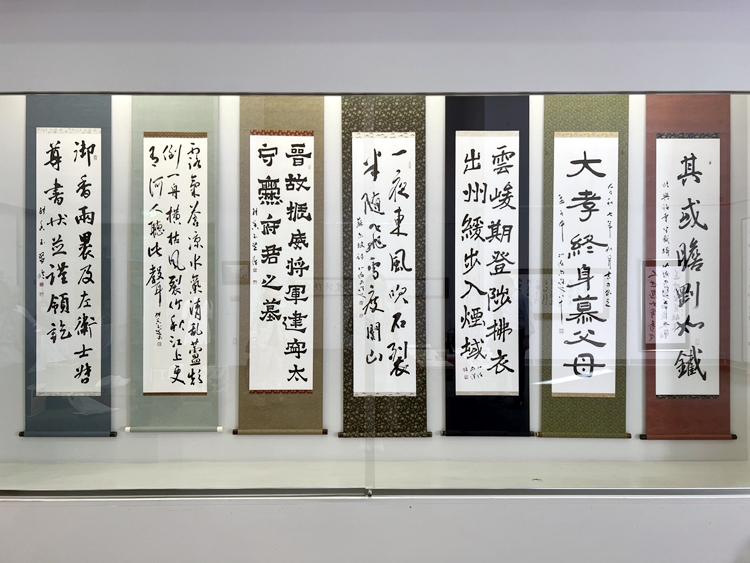 其或膽剛如鐵
大孝終身慕父母
雲峻期登陟拂衣
出州緩步入煙域
一夜東風吹石裂
半隨飛雪度關山
晉故振威將軍建寧太
守爨府君之墓
露氣蒼涼水氣清亂蘆頹
倒一舟橫枯風裂竹秋江上更
有何人聽此聲
御香兩裹及左衛士
尊書狀並謹領訖